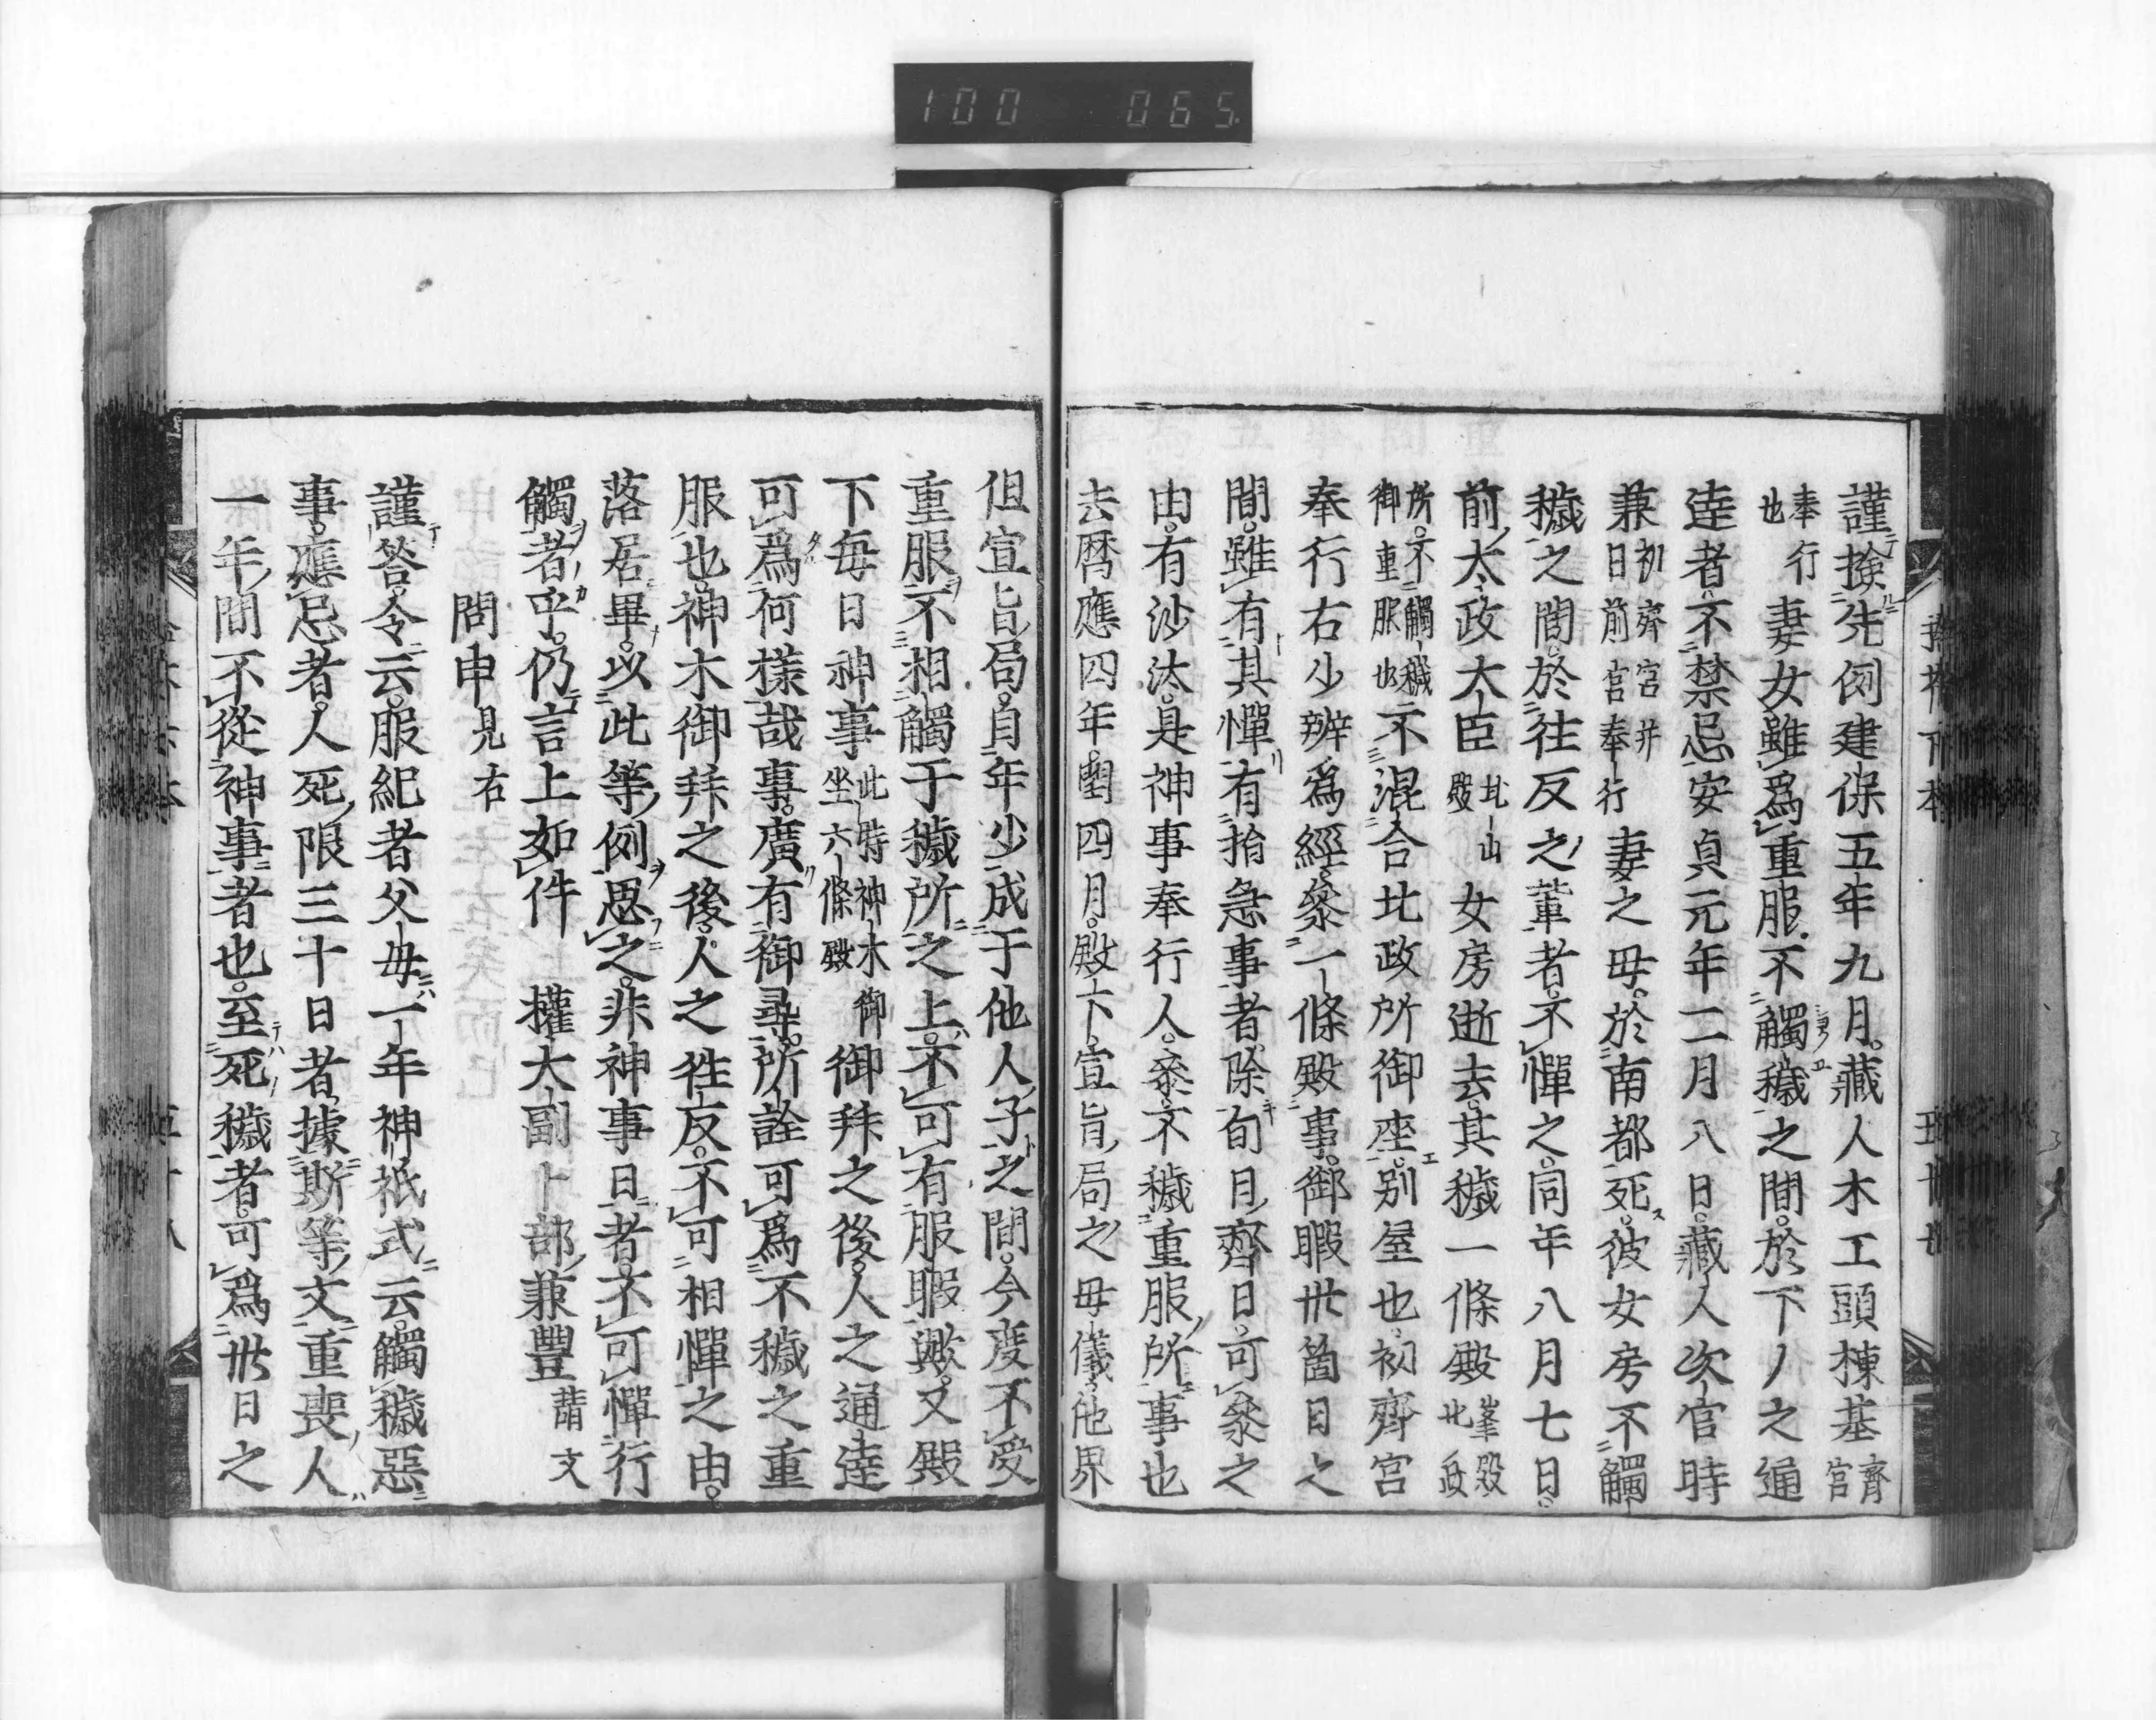 100 065
謹撿先例建保五年九月藏人木工頭棟基齊宮
奉行也妻女雖爲重服不觸穢之間於下ノ之通
達者不禁忌安貞元年二月八日藏人次官時
兼初齊宮并日前宮奉行妻之母於南都死彼女房不觸
穢之間於往反之輩者不憚之同年八月七日
前太政大臣北山殿女房逝去其穢一條殿峯殿北政
所不觸穢御重服也不混合北政所御座別屋也初齊宮
奉行右少辨爲經參一條殿事御暇卅箇日之
間雖有其憚有指急事者除旬月齊日可參之
由有沙汰是神事奉行人參不穢重服所事也
去曆應四年閏四月殿下宣旨局之母儀他界
但宣旨局自年少成于他人子之間今度不受
重服不相觸于穢所之上不可有服暇歟又殿
下每日神事此時神木御坐六條殿御拜之後人之通達
可爲何樣哉事廣有御尋所詮可爲不穢之重
服也神木御拜之後人之往反不可相憚之由
落居畢以此等例思之非神事日者不可憚行
觸者乎仍言上如件 權大副卜部兼豐請文
問申見右
謹答令云服紀者父母一年神祇式云觸穢惡
事應忌者人死限三十日者據斯等文重喪人
一年間不從神事者也至死穢者可爲卅日之